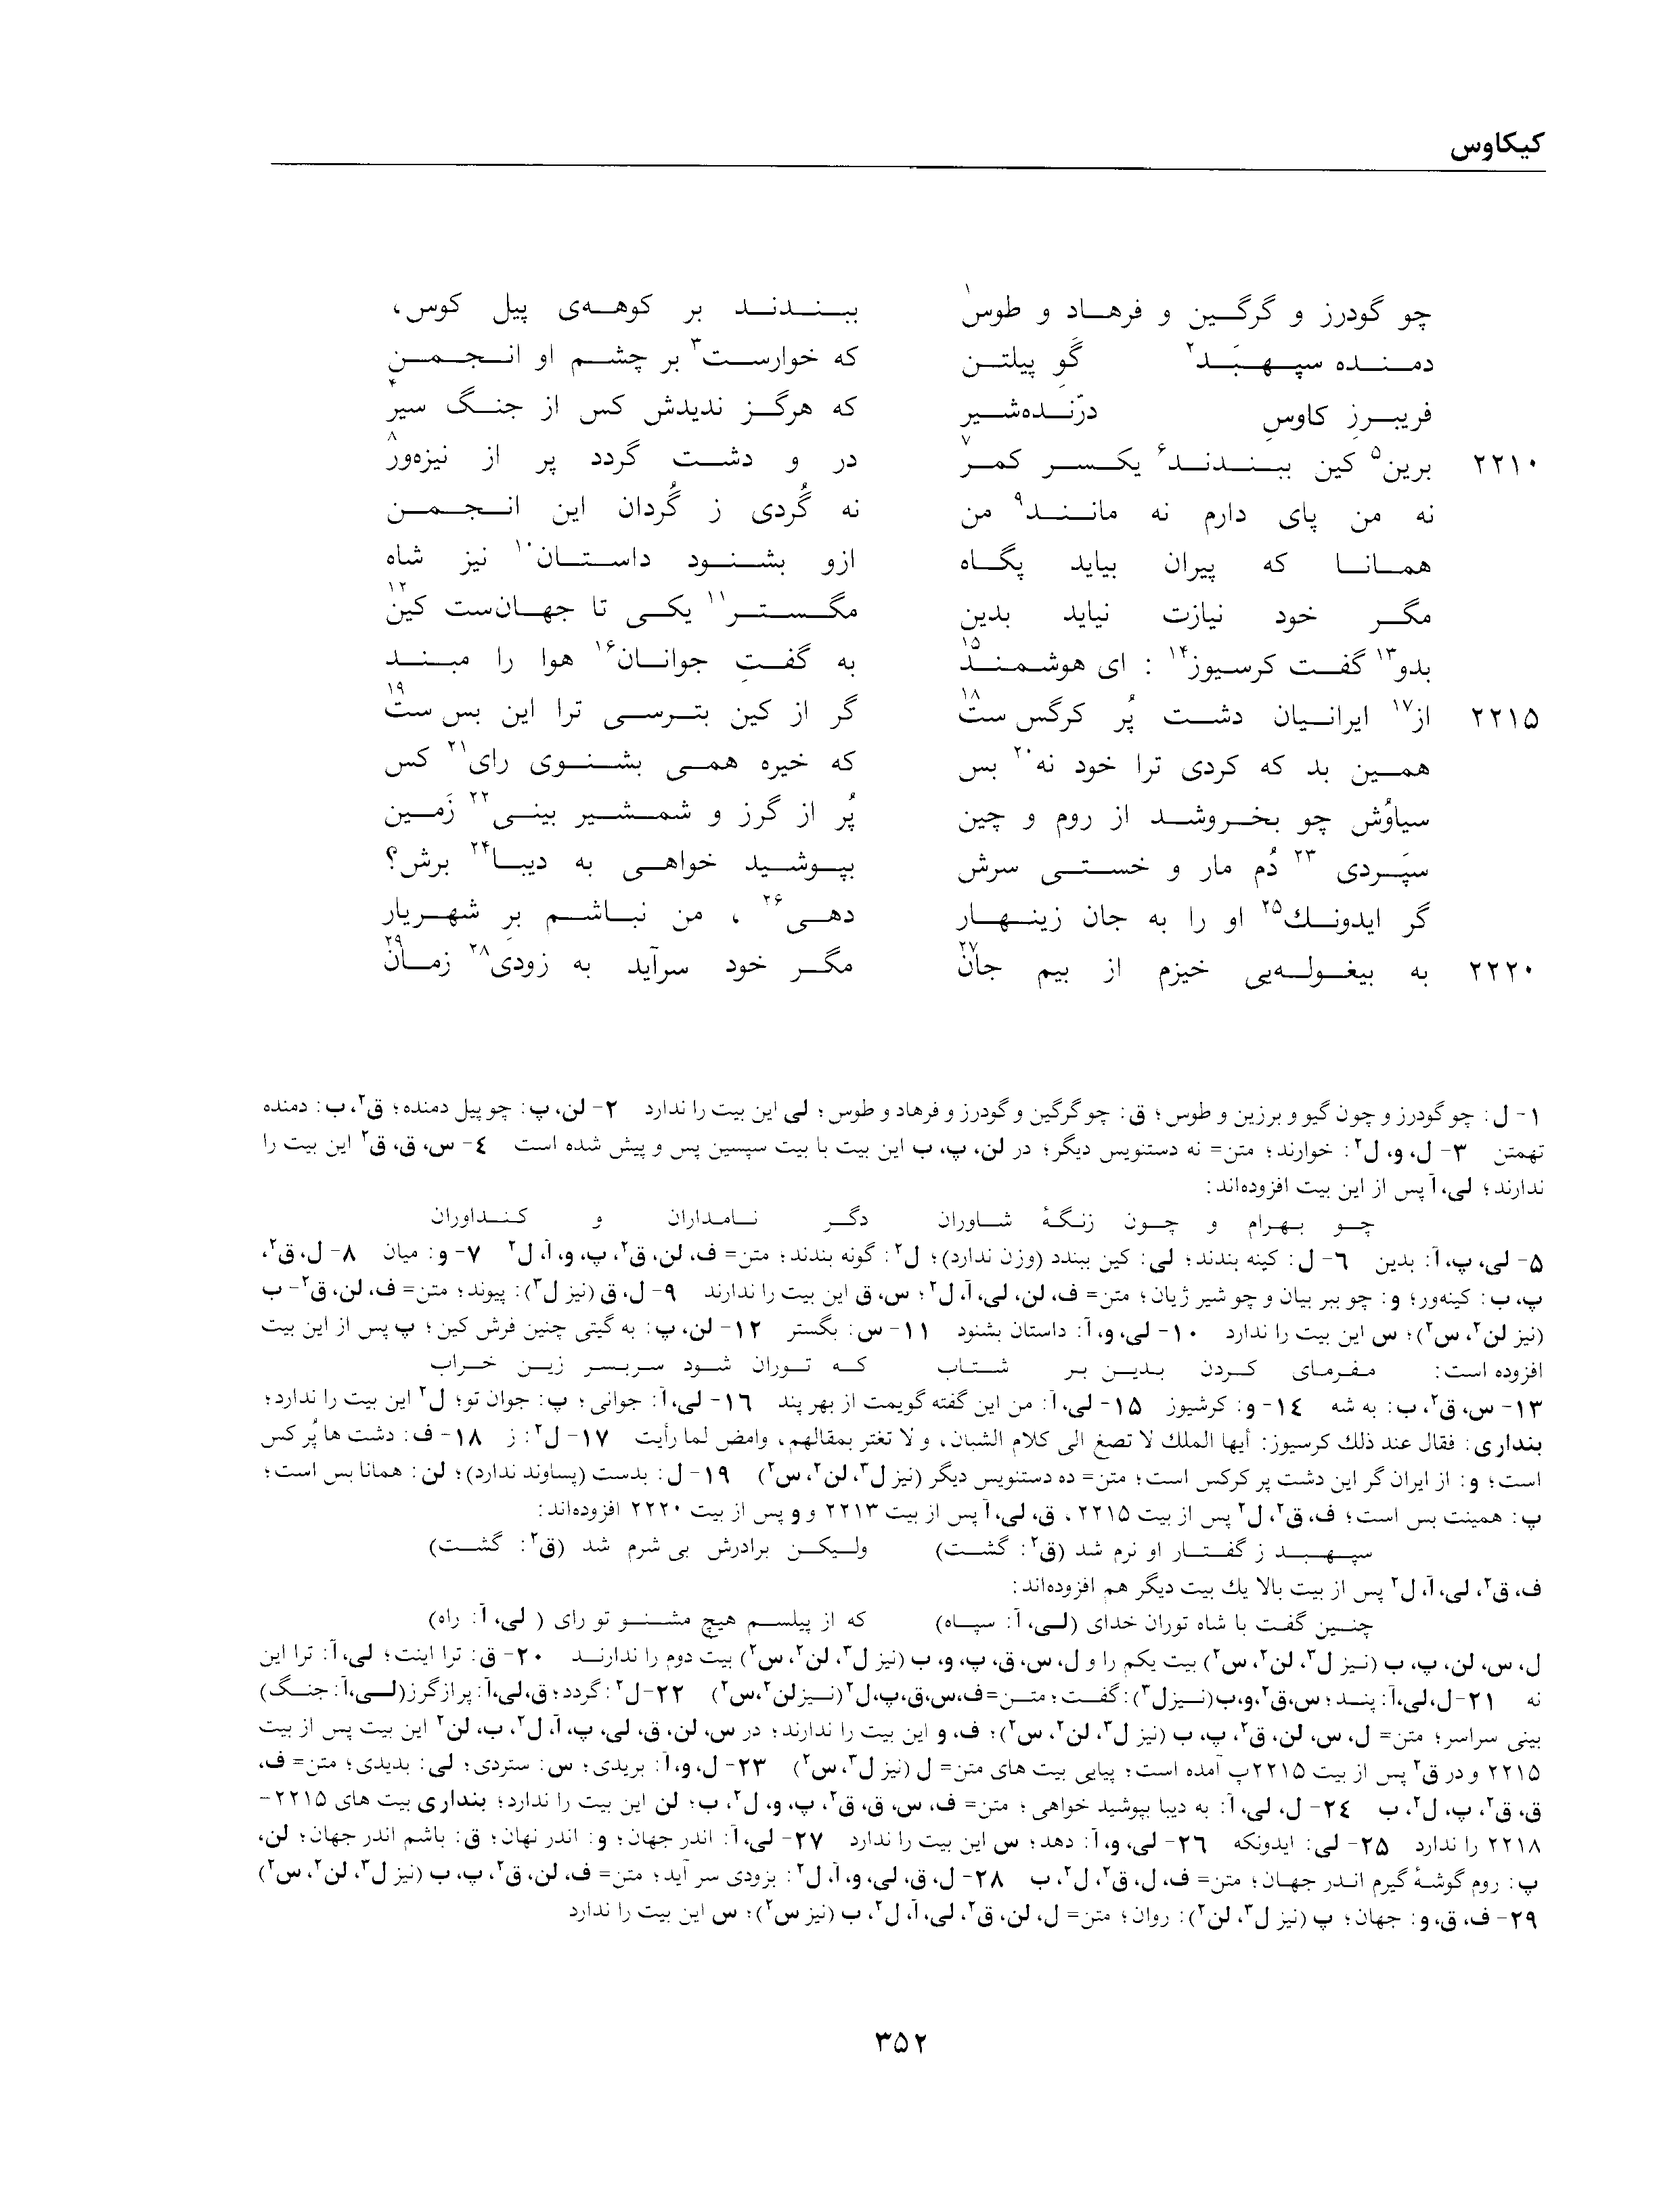 کیکاوس
چو گودرز و گرگین و فرهاد و طوس۱ ببندند بر کوهه‌ی پیل کوس،
دمنده سپهبَد۲ گَوِ پیلتن که خوارست۳ بر چشم او انجمن
فریبرزِ کاوسِ درّنده‌شیر که هرگز ندیدش کس از جنگ سیر۴
۲۲۱۰ برین۵ کین ببندند۶ یکسر کمر۷ در و دشت گردد پر از نیزه‌ور۸
نه من پای دارم نه مانند۹ من نه گُردی ز گُردان این انجمن
همانا که پیران بیاید پگاه ازو بشنود داستان۱۰ نیز شاه
مگر خود نیازت نیاید بدین مگستر۱۱ یکی تا جهان‌ست کین۱۲
بدو۱۳ گفت کرسیوز۱۴ : ای هوشمند۱۵ به گفتِ جوانان۱۶ هوا را مبند
۲۲۱۵ از۱۷ ایرانیان دشت پُر کرگس ست۱۸ گر از کین بترسی ترا این بس ست۱۹
همین بد که کردی ترا خود نه۲۰ بس که خیره همی بشنوی رای۲۱ کس
سیاوُش چو بخروشد از روم و چین پُر از گرز و شمشیر بینی۲۲ زَمین
سپَردی ۲۳ دُم مار و خستی سرش بپوشید خواهی به دیبا۲۴ برش؟
گر ایدونك۲۵ او را به جان زینهار دهی۲۶ ، من نباشم برِ شهریار
۲۲۲۰ به بیغوله‌یی خیزم از بیم جان۲۷ مگر خود سرآید به زودی۲۸ زمان۲۹
۱- ل: چو گودرز و چون گیو و برزین و طوس؛ ق: چو گرگین و گودرز و فرهاد و طوس؛ لی این بیت را ندارد ۲- لن، پ: چو پیل دمنده؛ ق۲، ب: دمنده
تهمتن ۳- ل، و، ل۲: خوارند؛ متن= نه دستنویس دیگر؛ در لن، پ، ب این بیت با بیت سپسین پس و پیش شده است ۴- س، ق، ق۲ این بیت را
ندارند؛ لی، آ پس از این بیت افزوده‌اند:
چو بهرام و چون زنگهٔ شاوران دگر نامداران و کنداوران
۵- لی، پ، آ: بدین ۶- ل: کینه بندند؛ لی: کین ببندد (وزن ندارد)؛ ل۲: گونه بندند؛ متن= ف، لن، ق۲، پ، و، آ، ل۲ ۷- و: میان ۸- ل، ق۲،
پ، ب: کینه‌ور؛ و: چو ببر بیان و چو شیر ژیان؛ متن= ف، لن، لی، آ، ل۲؛ س، ق این بیت را ندارند ۹- ل، ق (نیز ل۳): پیوند؛ متن= ف، لن، ق۲- ب
(نیز لن۲، س۲)؛ س این بیت را ندارد ۱۰- لی، و، آ: داستان بشنود ۱۱- س: بگستر ۱۲- لن، پ: به گیتی چنین فرش کین؛ پ پس از این بیت
افزوده است: مفرمای کردن بدین بر شتاب که توران شود سربسر زین خراب
۱۳- س، ق۲، ب: به شه ۱۴- و: کرشیوز ۱۵- لی، آ: من این گفته گویمت از بهر پند ۱۶- لی، آ: جوانی؛ پ: جوان تو؛ ل۲ این بیت را ندارد؛
بنداری: فقال عند ذلك كرسيوز: أيها الملك لا تصغ الى كلام الشبان، و لا تغتر بمقالهم، وامض لما رأيت ۱۷- ل۲: ز ۱۸- ف: دشت ها پُر کس
است؛ و: از ایران گر این دشت پر کرکس است؛ متن= ده دستنویس دیگر (نیز ل۳، لن۲، س۲) ۱۹- ل: بدست (پساوند ندارد)؛ لن: همانا بس است؛
پ: همینت بس است؛ ف، ق۲، ل۲ پس از بیت ۲۲۱۵، ق، لی، آ پس از بیت ۲۲۱۳ و و پس از بیت ۲۲۲۰ افزوده‌اند:
سپهبد ز گفتار او نرم شد (ق۲: گشت) ولیکن برادرش بی شرم شد (ق۲: گشت)
ف، ق۲، لی، آ، ل۲ پس از بیت بالا یك بیت دیگر هم افزوده‌اند:
چنین گفت با شاه توران خدای (لی، آ: سپاه) که از پیلسم هیچ مشنو تو رای ( لی، آ: راه)
ل، س، لن، پ، ب (نیز ل۳، لن۲، س۲) بیت یکم را و ل، س، ق، پ، و، ب (نیز ل۳، لن۲، س۲) بیت دوم را ندارند ۲۰- ق: ترا اینت؛ لی، آ: ترا این
نه ۲۱- ل، لی، آ: پند؛ س، ق۲، و، ب (نیز ل۳): گفت؛ متن= ف، س، ق، پ، ل۲ (نیز لن۲، س۲) ۲۲- ل۲: گردد؛ ق، لی، آ: پر از گرز (لی، آ: جنگ)
بینی سراسر؛ متن= ل، س، لن، ق۲، پ، ب (نیز ل۳، لن۲، س۲)؛ ف، و این بیت را ندارند؛ در س، لن، ق، لی، پ، آ، ل۲، ب، لن۲ این بیت پس از بیت
۲۲۱۵ و در ق۲ پس از بیت ۲۲۱۵پ آمده است؛ پیاپی بیت های متن= ل (نیز ل۳، س۲) ۲۳- ل، و، آ: بریدی؛ س: ستردی؛ لی: بدیدی؛ متن= ف،
ق، ق۲، پ، ل۲، ب ۲۴- ل، لی، آ: به دیبا بپوشید خواهی؛ متن= ف، س، ق، ق۲، پ، و، ل۲، ب؛ لن این بیت را ندارد؛ بنداری بیت های ۲۲۱۵-
۲۲۱۸ را ندارد ۲۵- لی: ایدونکه ۲۶- لی، و، آ: دهد؛ س این بیت را ندارد ۲۷- لی، آ: اندر جهان؛ و: اندر نهان؛ ق: باشم اندر جهان؛ لن،
پ: روم گوشهٔ گیرم اندر جهان؛ متن= ف، ل، ق۲، ل۲، ب ۲۸- ل، ق، لی، و، آ، ل۲: بزودی سر آید؛ متن= ف، لن، ق۲، پ، ب (نیز ل۳، لن۲، س۲)
۲۹- ف، ق، و: جهان؛ پ (نیز ل۳، لن۲): روان؛ متن= ل، لن، ق۲، لی، آ، ل۲، ب (نیز س۲)؛ س این بیت را ندارد
۳۵۲